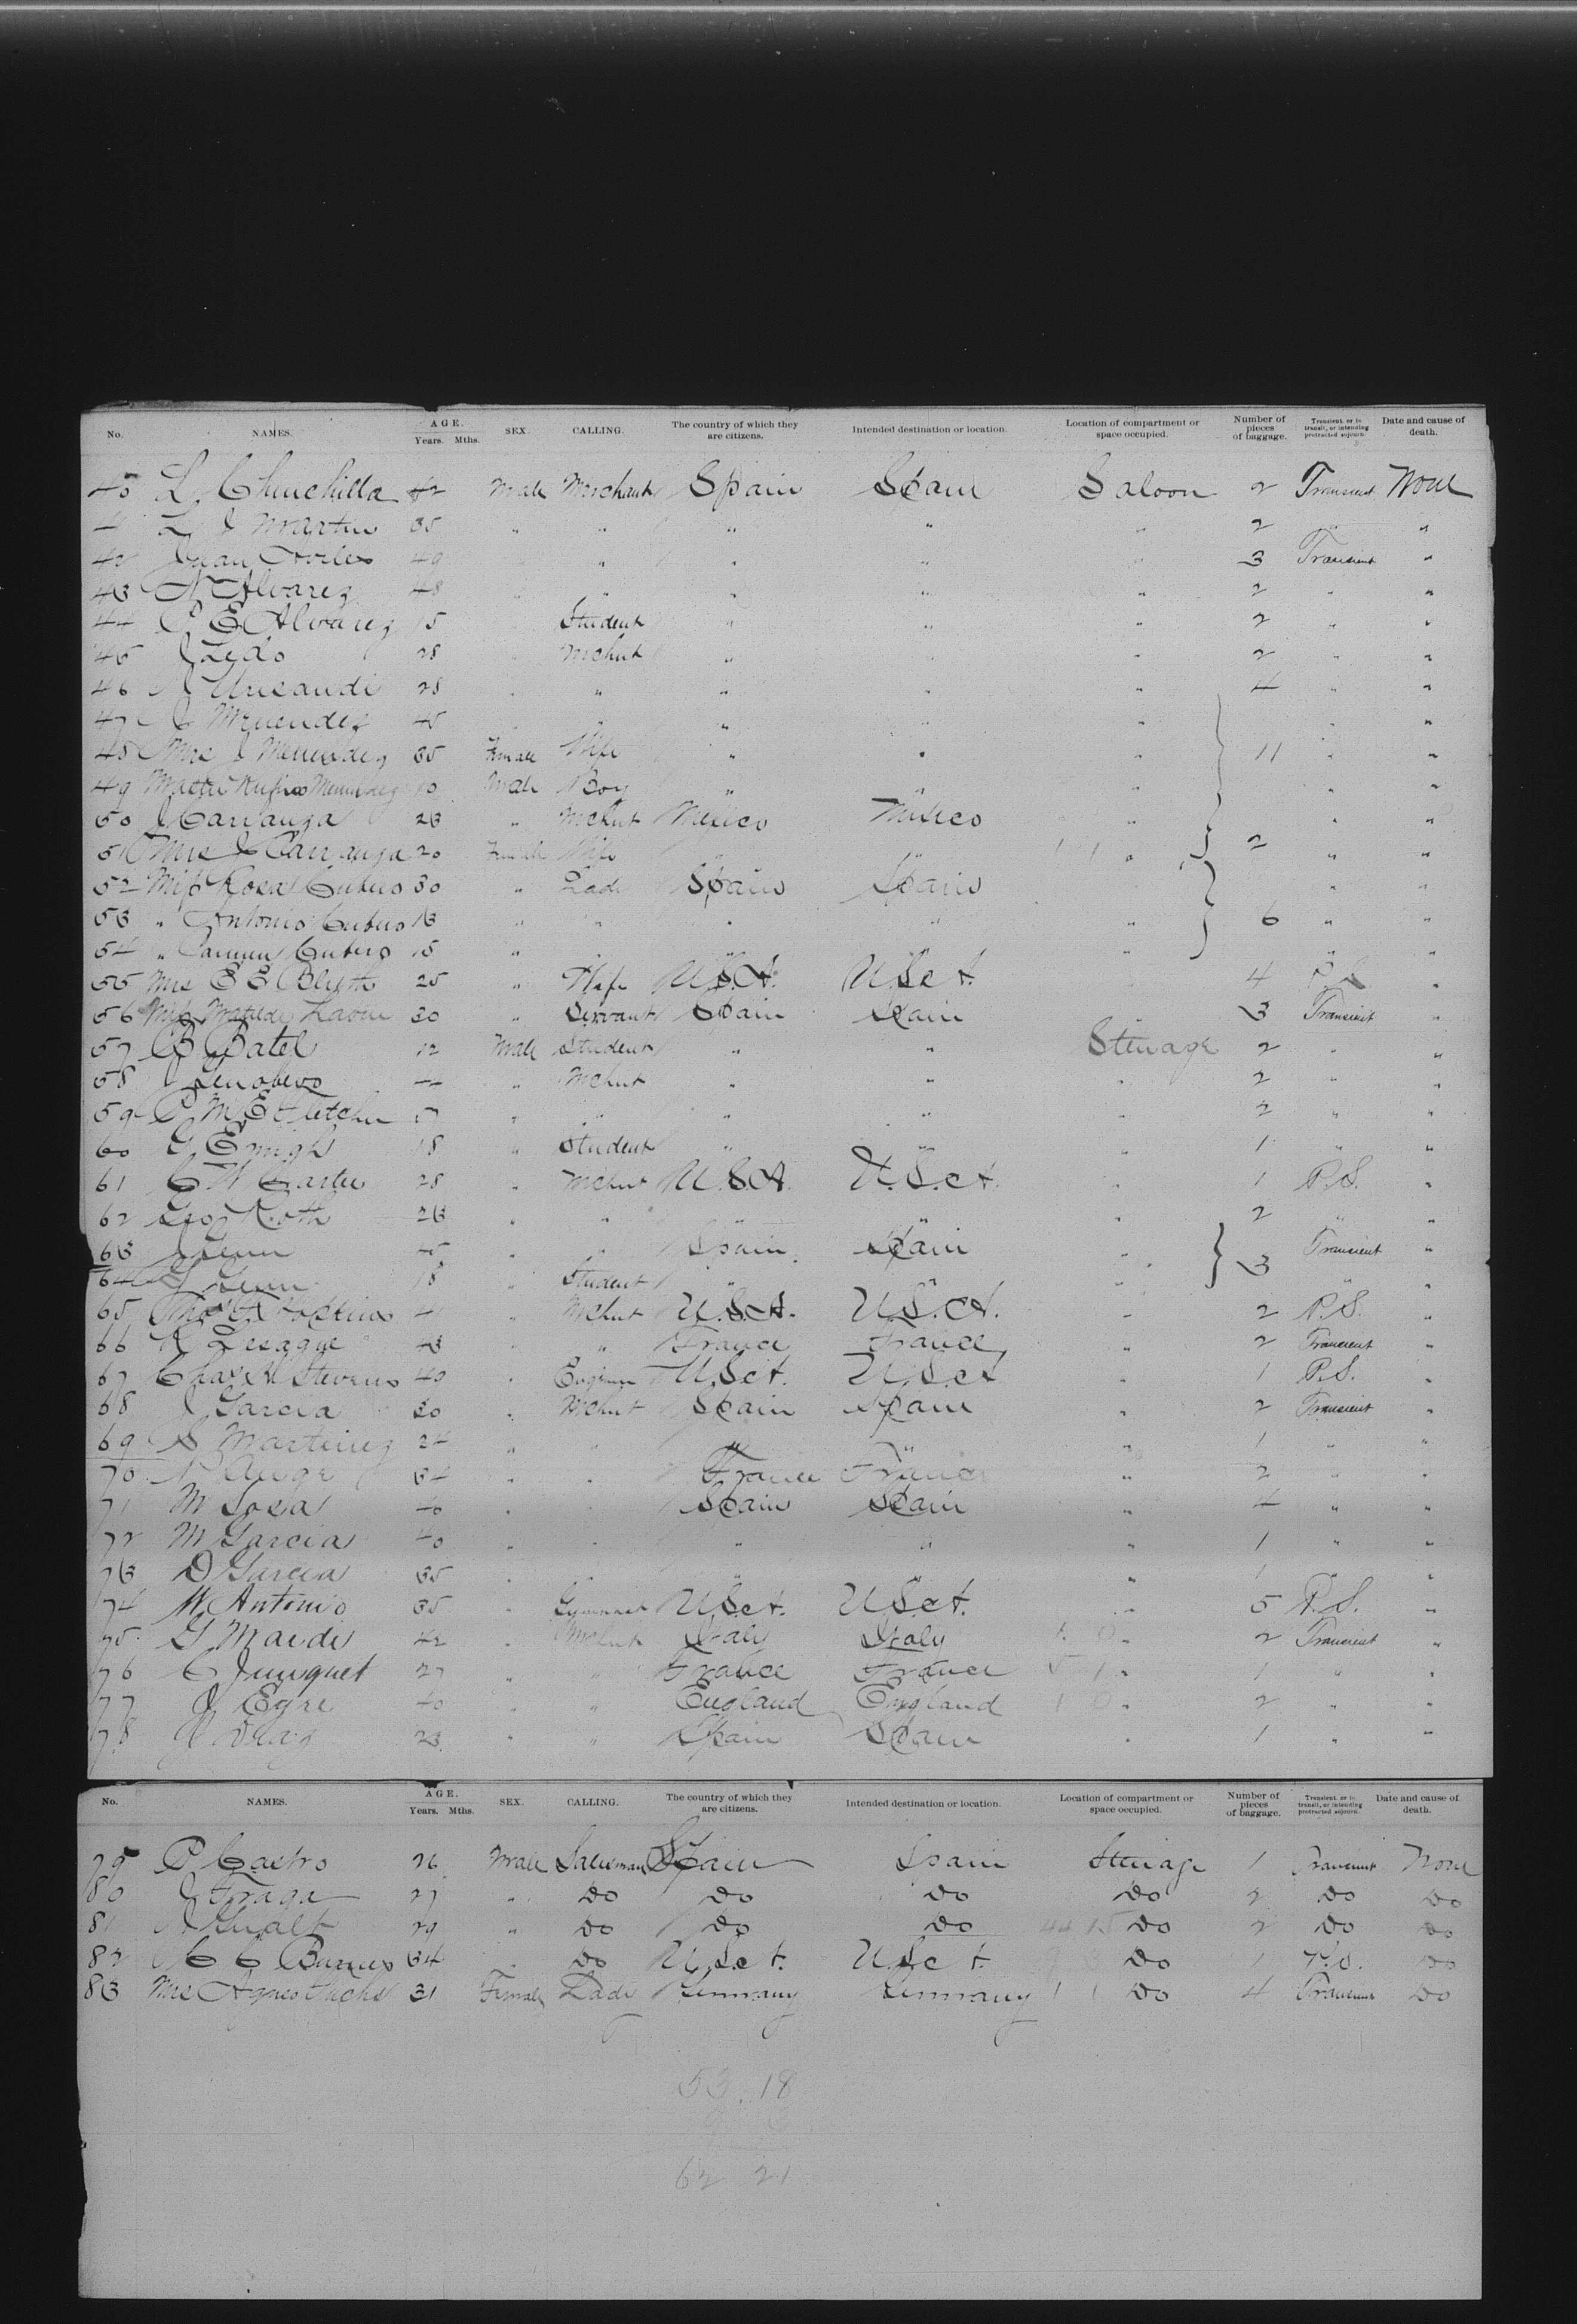 No. NAMES. AGE. Years. Mths. SEX. CALLING. The country of which they are citizens. Intended destination or location. Location of compartment or space occupied. Number of pieces of baggage. Transient, or in transit, or intending protracted sojourn. Date and cause of death.
40 L. Chinchilla 42 Male Merchant Spain Spain Saloon 2 Transient None
41 L J Martin 35 " " " " " 2 " "
42 Juan 49 " " " " 3 Transient "
43 N Alvarez 48 " " " " " 2 " "
44 P E Alvarez 15 " Student " " " 2 " "
45 J Ledo 28 " Mchnt " " " 2 " "
46 28 " " " " " 4 " "
47 J Menendez 45 " " " " " " "
48 Mrs J Menendez 35 Female Wife " " " } 11 " "
49 Master Rufino Menendez 10 Male Boy " " " " "
50 J Carranza 23 " Mchnt Mexico Mexico " " "
51 Mrs J Carranza 20 Female Wife " " 1 1 " } 2 " "
52 Miss Rosa Cubero 30 " Lady Spain Spain " " "
53 " Antonio Cubero 13 " " " " " } 6 " "
54 " Carmen Cubero 15 " " " " " " "
55 Mrs E E Blyth 25 " Wife U.S.A. U.S.A. 4 P.S. "
56 Miss Matilde 30 " Servant Spain Spain 3 Transient "
57 B Batel 12 Male Student " " Steerage 2 " "
58 J " Mchnt " " " 2 " "
59 P M E Fletcher " " " " " 2 " "
60 G Emigh 18 " Student " " " 1 " "
61 C W Carter 28 " Mchnt U.S.A. U.S.A. " 1 P.S. "
62 Geo Roth 23 " " " " " 2 " "
63 45 " " Spain Spain " } 3 Transient "
64 18 " Student " " " " "
65 Thos Hopkins 41 " Mchnt U.S.A. U.S.A. " 2 P.S. "
66 R Lesague 43 " " France France " 2 Transient "
67 Chas H Stevens 40 " Engineer U.S.A. U.S.A. " 1 P.S. "
68 J Garcia 30 " Mchnt Spain Spain " 2 Transient "
69 S Martinez 24 " " " " " 1 " "
70 34 " " France France " 2 " "
71 M Sosa 40 " " Spain Spain " 4 " "
72 M Garcia 40 " " " " " 1 " "
73 D Garcia 35 " " " " " 1 " "
74 W Antonio 35 " U.S.A. U.S.A. " 5 P.S. "
75 G 42 " Mchnt Italy Italy 1 0 " 2 Transient "
76 C Junquet 27 " " France France 5 1 " 1 " "
77 J Eyre 40 " " England England 1 0 " 2 " "
78 23 " " Spain Spain " 1 " "
No. NAMES. AGE. Years. Mths. SEX. CALLING. The country of which they are citizens. Intended destination or location. Location of compartment or space occupied. Number of pieces of baggage. Transient, or in transit, or intending protracted sojourn. Date and cause of death.
79 P Castro 26 Male Salesman Spain Spain Steerage 1 Transient None
80 J Fraga 27 " Do Do Do Do 2 Do Do
81 29 " Do Do Do 44 15 Do 2 Do Do
82 C C 34 " Do U.S.A. U.S.A. 9 3 Do 1 P.S. Do
83 Mrs Agnes Sachs 31 Female Lady Germany Germany 1 1 Do 4 Transient Do
53 18
9 3
62 21